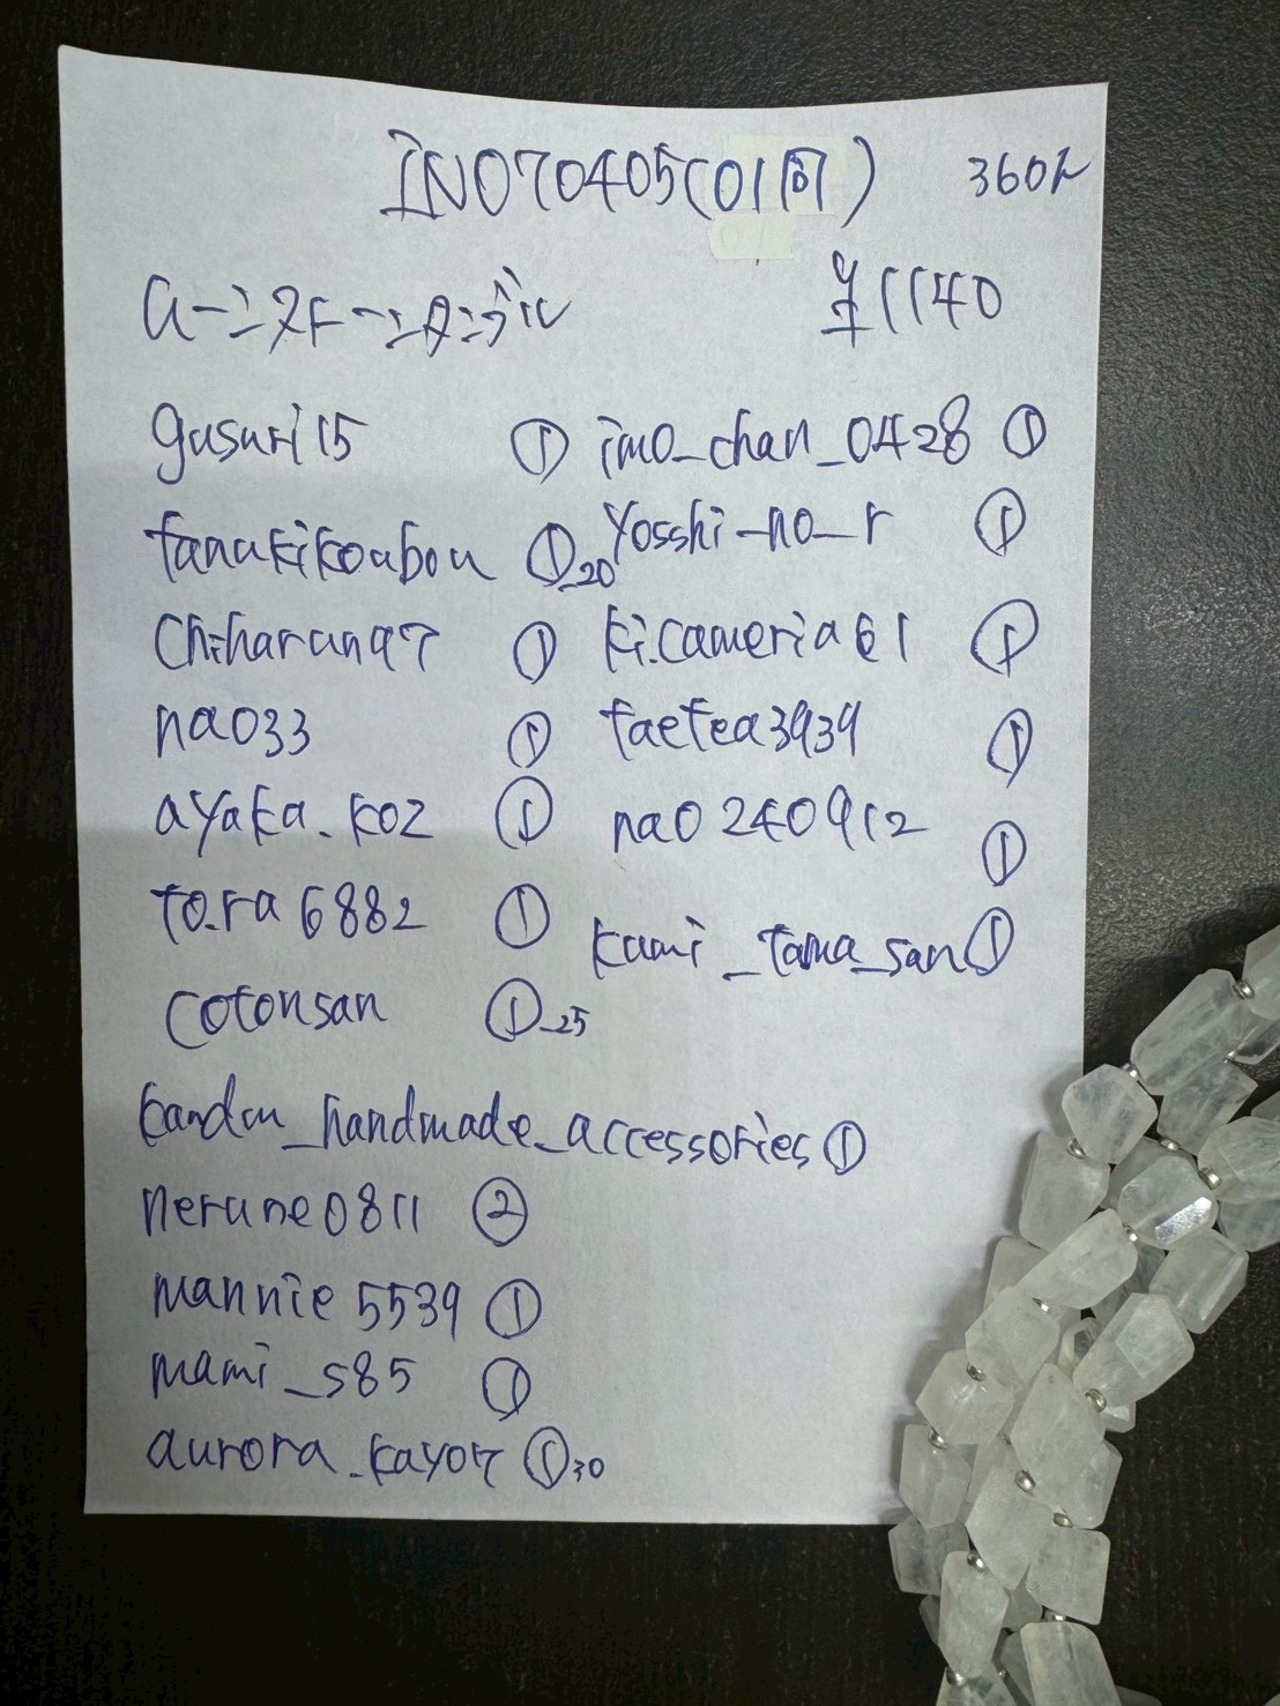 INO70405(01同) 360ル
¥1140
gusuri15 ① imo_chan_0428 ①
tanukikoubou ①_20 yosshi_no_r ①
chiharun97 ① ki.cameria61 ①
nao33 ① taetea3939 ①
ayaka.koz ① nao240912 ①
to.ra6882 ① kami_tama_san①
cotonsan ①_25
kandm_handmade_accessories①
nerune0811 ②
mannie5539 ①
mami_s85 ①
aurora.kayo7 ①30